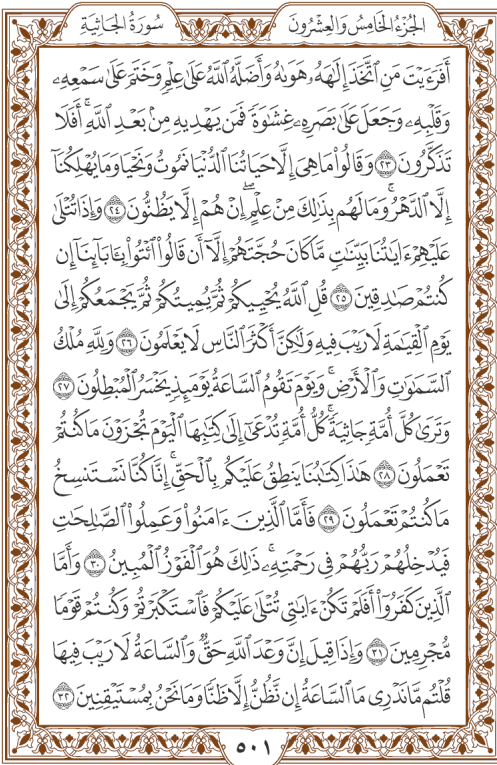 سُورَةُ الجَاثِيَةِ
الجُزْءُ الخَامِسُ وَالعِشْرُونَ
أَفَرَءَيْتَ مَنِ ٱتَّخَذَ إِلَٰهَهُۥ هَوَىٰهُ وَأَضَلَّهُ ٱللَّهُ عَلَىٰ عِلْمٍ وَخَتَمَ عَلَىٰ سَمْعِهِۦ
وَقَلْبِهِۦ وَجَعَلَ عَلَىٰ بَصَرِهِۦ غِشَٰوَةً فَمَن يَهْدِيهِ مِنۢ بَعْدِ ٱللَّهِۚ أَفَلَا
تَذَكَّرُونَ ٢٣ وَقَالُوا۟ مَا هِىَ إِلَّا حَيَاتُنَا ٱلدُّنْيَا نَمُوتُ وَنَحْيَا وَمَا يُهْلِكُنَآ
إِلَّا ٱلدَّهْرُۚ وَمَا لَهُم بِذَٰلِكَ مِنْ عِلْمٍۖ إِنْ هُمْ إِلَّا يَظُنُّونَ ٢٤ وَإِذَا تُتْلَىٰ
عَلَيْهِمْ ءَايَٰتُنَا بَيِّنَٰتٍ مَّا كَانَ حُجَّتَهُمْ إِلَّآ أَن قَالُوا۟ ٱئْتُوا۟ بِـَٔابَآئِنَآ إِن
كُنتُمْ صَٰدِقِينَ ٢٥ قُلِ ٱللَّهُ يُحْيِيكُمْ ثُمَّ يُمِيتُكُمْ ثُمَّ يَجْمَعُكُمْ إِلَىٰ
يَوْمِ ٱلْقِيَٰمَةِ لَا رَيْبَ فِيهِ وَلَٰكِنَّ أَكْثَرَ ٱلنَّاسِ لَا يَعْلَمُونَ ٢٦ وَلِلَّهِ مُلْكُ
ٱلسَّمَٰوَٰتِ وَٱلْأَرْضِۚ وَيَوْمَ تَقُومُ ٱلسَّاعَةُ يَوْمَئِذٍ يَخْسَرُ ٱلْمُبْطِلُونَ ٢٧
وَتَرَىٰ كُلَّ أُمَّةٍ جَاثِيَةًۚ كُلُّ أُمَّةٍ تُدْعَىٰٓ إِلَىٰ كِتَٰبِهَا ٱلْيَوْمَ تُجْزَوْنَ مَا كُنتُمْ
تَعْمَلُونَ ٢٨ هَٰذَا كِتَٰبُنَا يَنطِقُ عَلَيْكُم بِٱلْحَقِّۚ إِنَّا كُنَّا نَسْتَنسِخُ
مَا كُنتُمْ تَعْمَلُونَ ٢٩ فَأَمَّا ٱلَّذِينَ ءَامَنُوا۟ وَعَمِلُوا۟ ٱلصَّٰلِحَٰتِ
فَيُدْخِلُهُمْ رَبُّهُمْ فِى رَحْمَتِهِۦۚ ذَٰلِكَ هُوَ ٱلْفَوْزُ ٱلْمُبِينُ ٣٠ وَأَمَّا
ٱلَّذِينَ كَفَرُوٓا۟ أَفَلَمْ تَكُنْ ءَايَٰتِى تُتْلَىٰ عَلَيْكُمْ فَٱسْتَكْبَرْتُمْ وَكُنتُمْ قَوْمًا
مُّجْرِمِينَ ٣١ وَإِذَا قِيلَ إِنَّ وَعْدَ ٱللَّهِ حَقٌّ وَٱلسَّاعَةُ لَا رَيْبَ فِيهَا
قُلْتُم مَّا نَدْرِى مَا ٱلسَّاعَةُ إِن نَّظُنُّ إِلَّا ظَنًّا وَمَا نَحْنُ بِمُسْتَيْقِنِينَ ٣٢
٥٠١